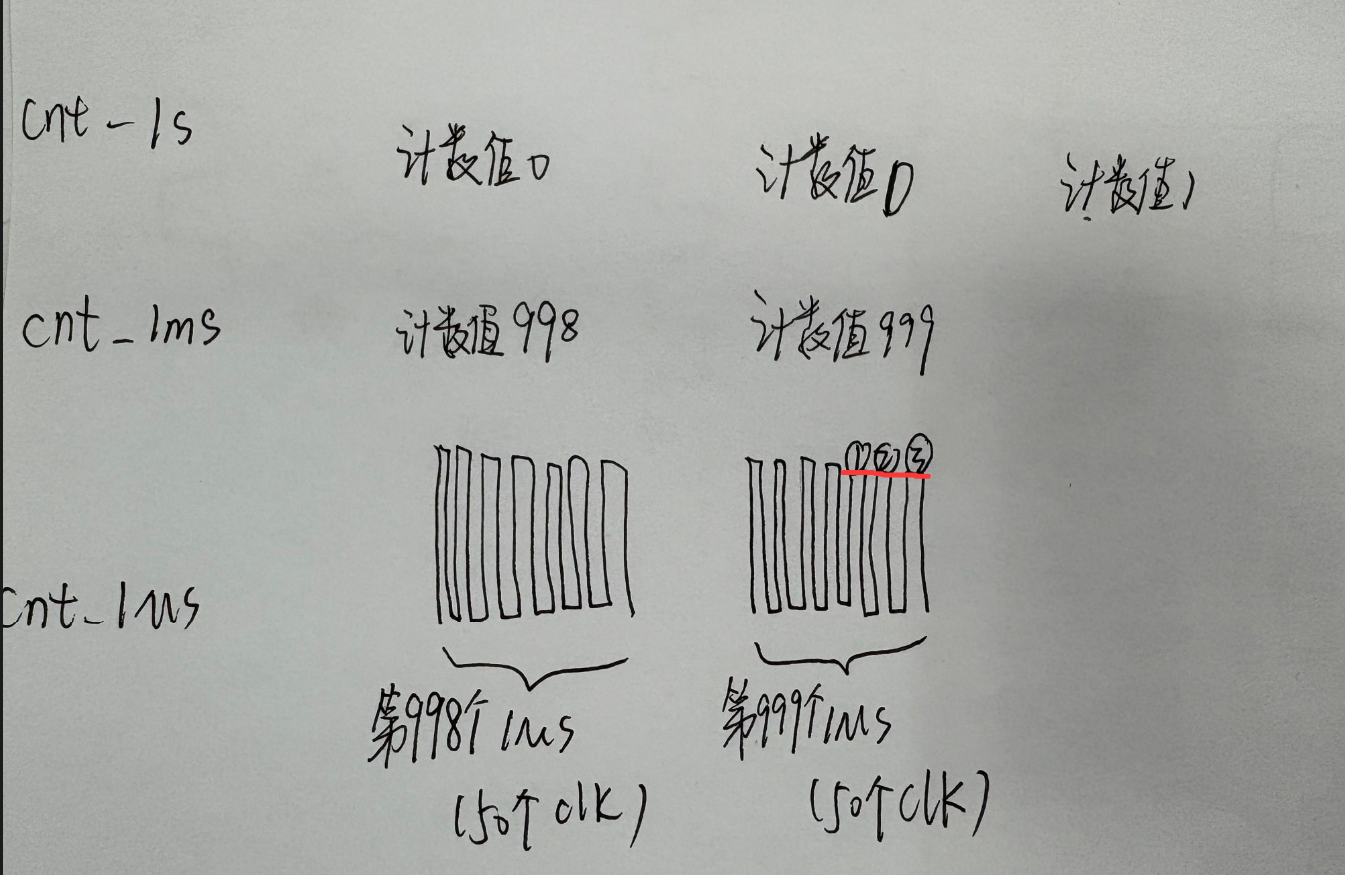 cnt-1s 计数值0 计数值0 计数值1
cnt_1ms 计数值998 计数值999
① ② ③
cnt_1us
第998个1us 第999个1us
(50个clk) (50个clk)